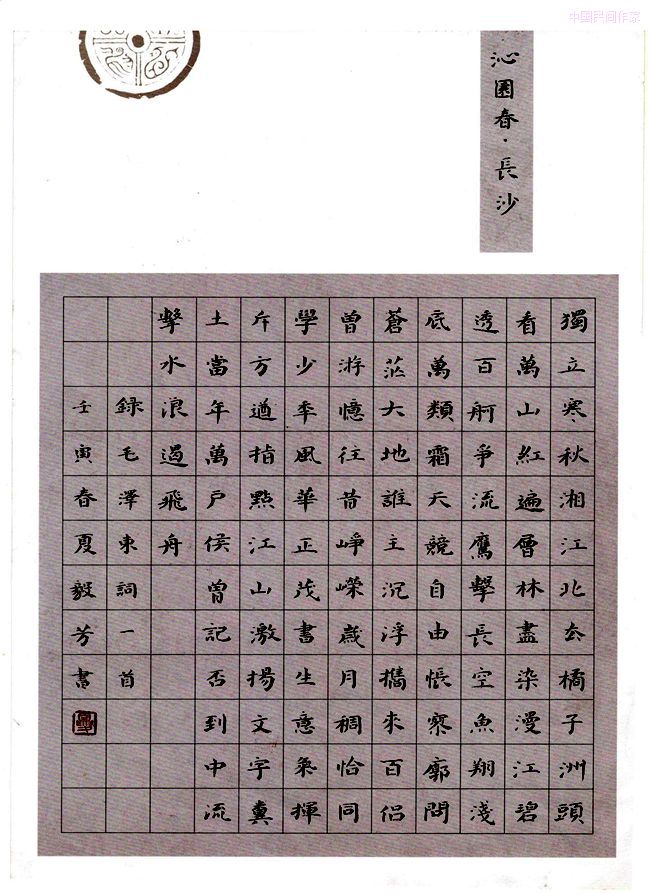 中國民间作家
沁園春·長沙
獨立寒秋湘江北去橘子洲頭
看萬山紅遍層林盡染漫江碧
透百舸爭流鷹擊長空魚翔淺
底萬類霜天競自由悵寥廓問
蒼茫大地誰主沉浮攜來百侶
曾游憶往昔崢嶸歲月稠恰同
學少秊風華正茂書生意氣揮
斥方遒指點江山激揚文字糞
土當年萬戶侯曾記否到中流
擊水浪遏飛舟
録毛澤東詞一首
壬寅春夏毅芳書